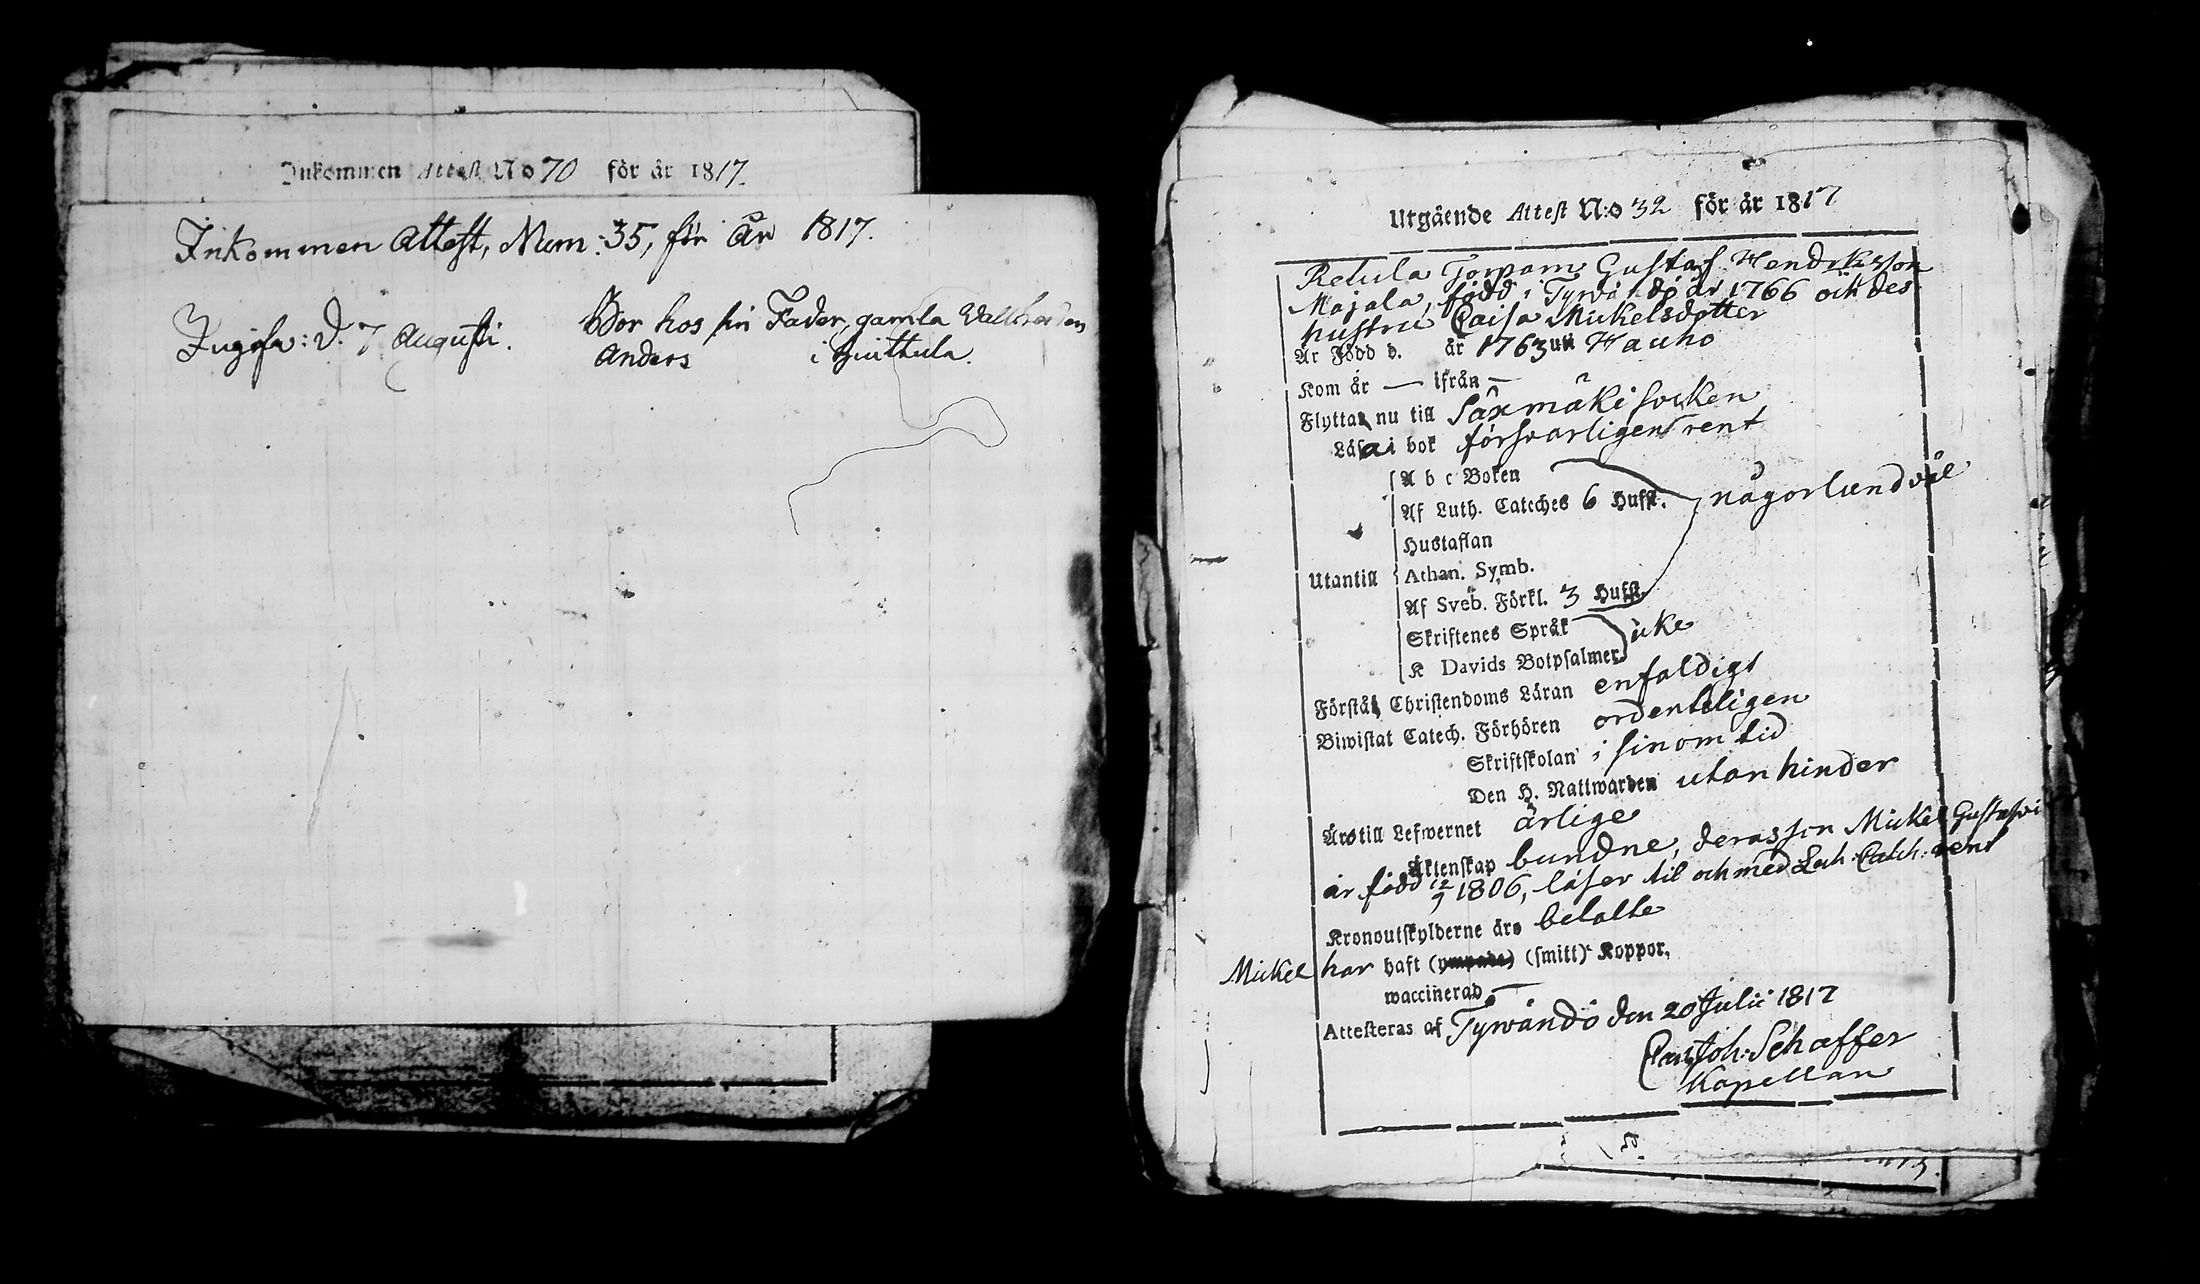 Inkommen Attest No 70 för år 1817.
Inkommen Attest, Num: 35, för År 1817.
d. 7 Augusti.
Bor hos sin Fader, gamla
Anders i Huittula.
Utgående Attest N:o 32 för år 1817
Retula Torpam Gustaf Hendriksson
Majala, född i Tyrwändö år 1766 och des
hustru Caisa Mickelsdotter
Är Född d. år 1763 uti Hauho
Kom år — ifrån —
Flytta nu till Säxmäki socken
Läsa i bok försvarligen rent
A b c Boken
Af Luth. Cateches 6 Hufst. någorlund väl
Hustaflan
Utantill Athan. Symb.
Af Sveb. Förkl. 3 Hufst.
Skriftenes Språk icke
K Davids Botpsalmer
Förstå Christendoms Läran enfaldigt
Biwistat Catech. Förhören ordenteligen
Skriftskolan i sinom tid
Den H. Nattwarden utan hinder
Äro till Lefwernet ärlige
Äktenskap bundne, deras son Mickel
är född 12/9 1806, läser til och med Luth. Catech. rent
Kronoutskylderne äro betalte
Mickel har haft (ympade) (smitt) Koppor,
waccinerad —
Attesteras af Tyrwändö den 20 Julii 1817
Joh: Schaffer
Kapellan